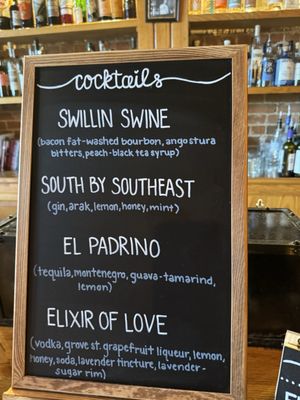 cocktails
SWILLIN SWINE
(bacon fat-washed bourbon, angostura
bitters, peach-black tea syrup)
SOUTH BY SOUTHEAST
(gin, arak, lemon, honey, mint)
EL PADRINO
(tequila, montenegro, guava-tamarind,
lemon)
ELIXIR OF LOVE
(vodka, grove st. grapefruit liqueur, lemon,
honey, soda, lavender tincture, lavender-
sugar rim)